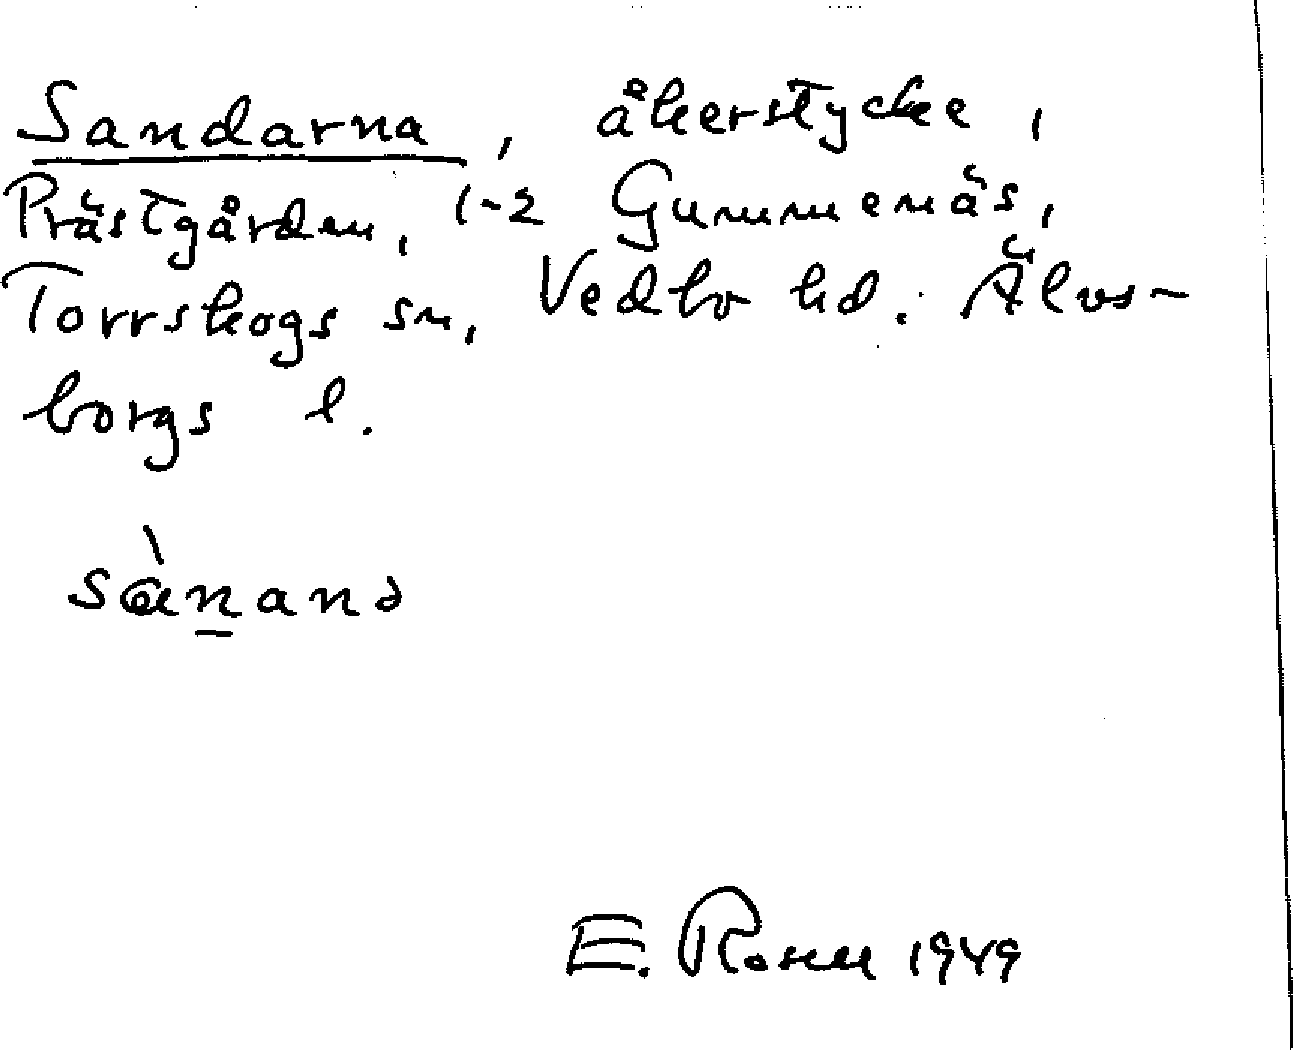 Sandarna, åkerstycke,
Prästgården, 1-2 Gummenäs,
Torrskogs sn, Vedbo hd. Älvs-
borgs l.
E. Rosen 1949